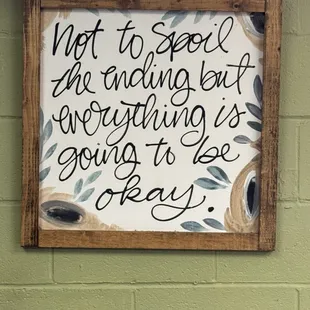 not to spoil
the ending but
everything is
going to be
okay.